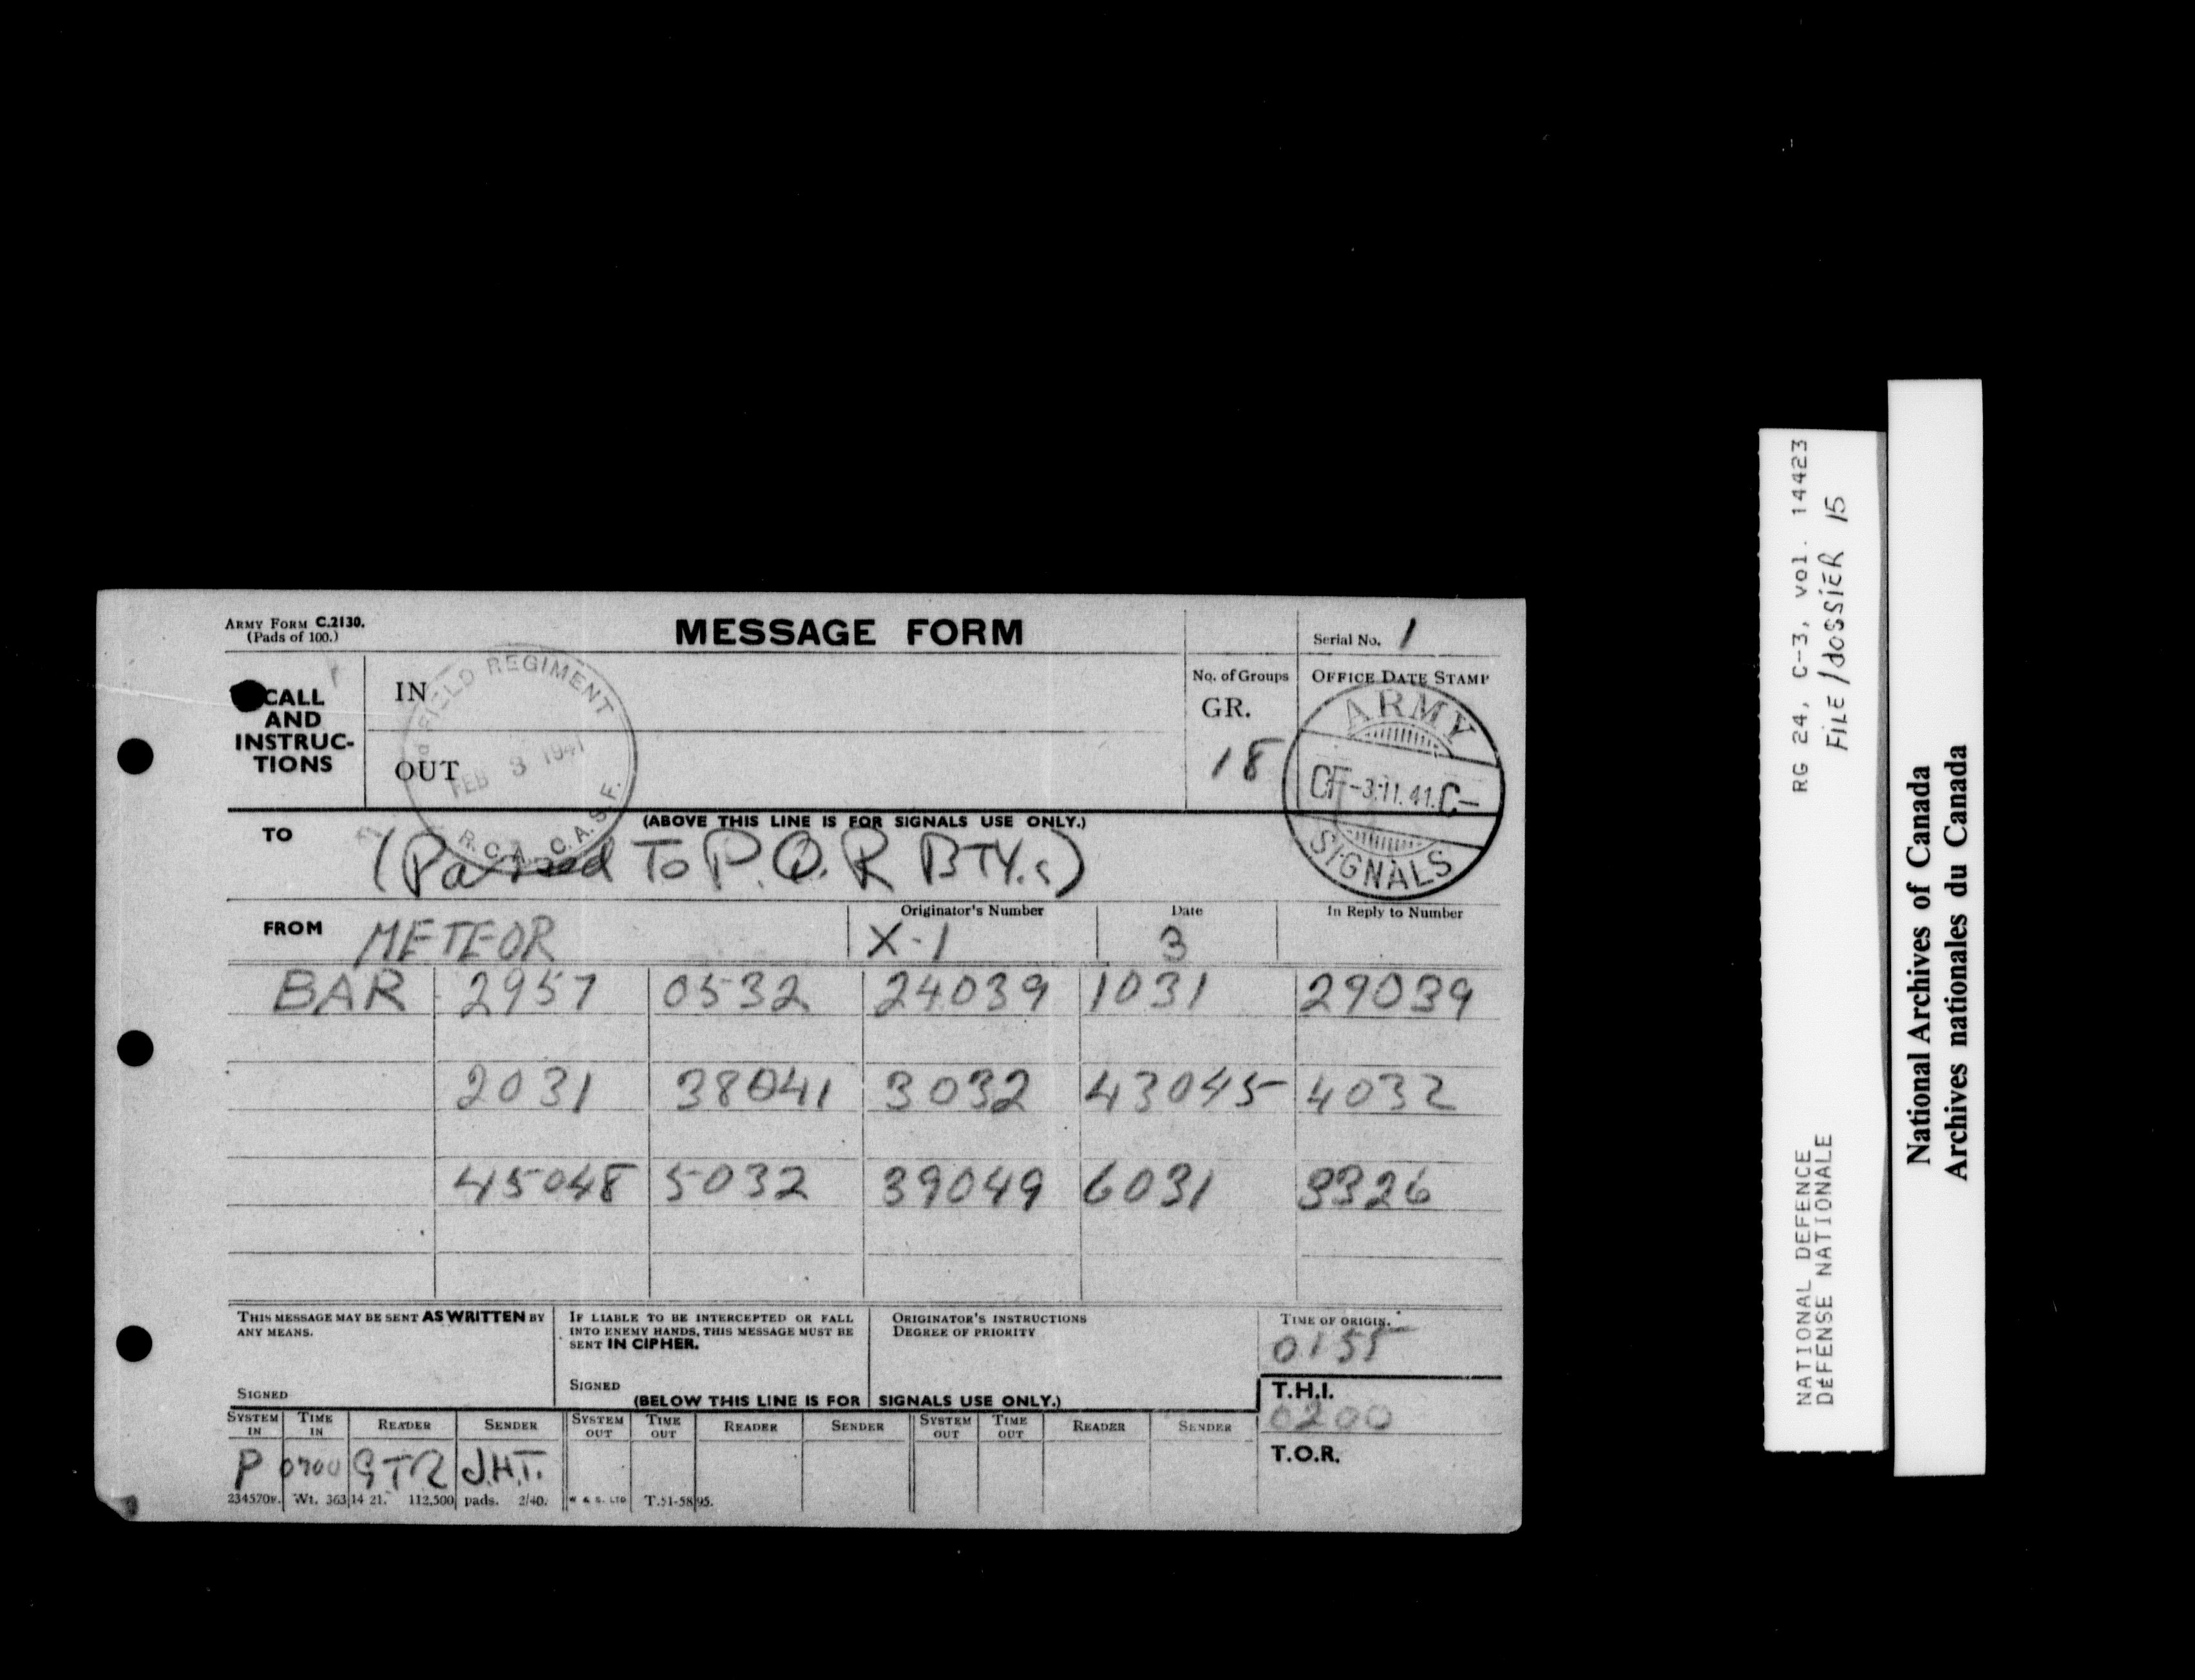 ARMY FORM C.2130.
(Pads of 100.)
MESSAGE FORM
Serial No. 1
CALL AND INSTRUC-TIONS
IN
OUT
FIELD REGIMENT
FEB 3 1941
R.C.A. C.A.S.F.
No. of Groups
GR.
18
OFFICE DATE STAMP
ARMY
CF-3.II.41.C-
SIGNALS
(ABOVE THIS LINE IS FOR SIGNALS USE ONLY.)
TO (Passed To P.Q.R BTY.s)
FROM METEOR
Originator's Number X-1
Date 3
In Reply to Number
BAR 2957 0532 24039 1031 29039
2031 38041 3032 43045 4032
45048 5032 39049 6031 3326
THIS MESSAGE MAY BE SENT AS WRITTEN BY ANY MEANS.
SIGNED
IF LIABLE TO BE INTERCEPTED OR FALL INTO ENEMY HANDS, THIS MESSAGE MUST BE SENT IN CIPHER.
SIGNED
ORIGINATOR'S INSTRUCTIONS
DEGREE OF PRIORITY
TIME OF ORIGIN.
0155
(BELOW THIS LINE IS FOR SIGNALS USE ONLY.)
T.H.I.
0200
T.O.R.
SYSTEM IN TIME IN READER SENDER SYSTEM OUT TIME OUT READER SENDER SYSTEM OUT TIME OUT READER SENDER
P 0700 GTR J.H.T.
Wt. 36314 21. 112,500 pads. 2/40. W & S. LTD T.51-5895.
RG 24, C-3, vol. 14423
FILE/dOSSIER 15
NATIONAL DEFENCE
DEFENSE NATIONALE
National Archives of Canada
Archives nationales du Canada